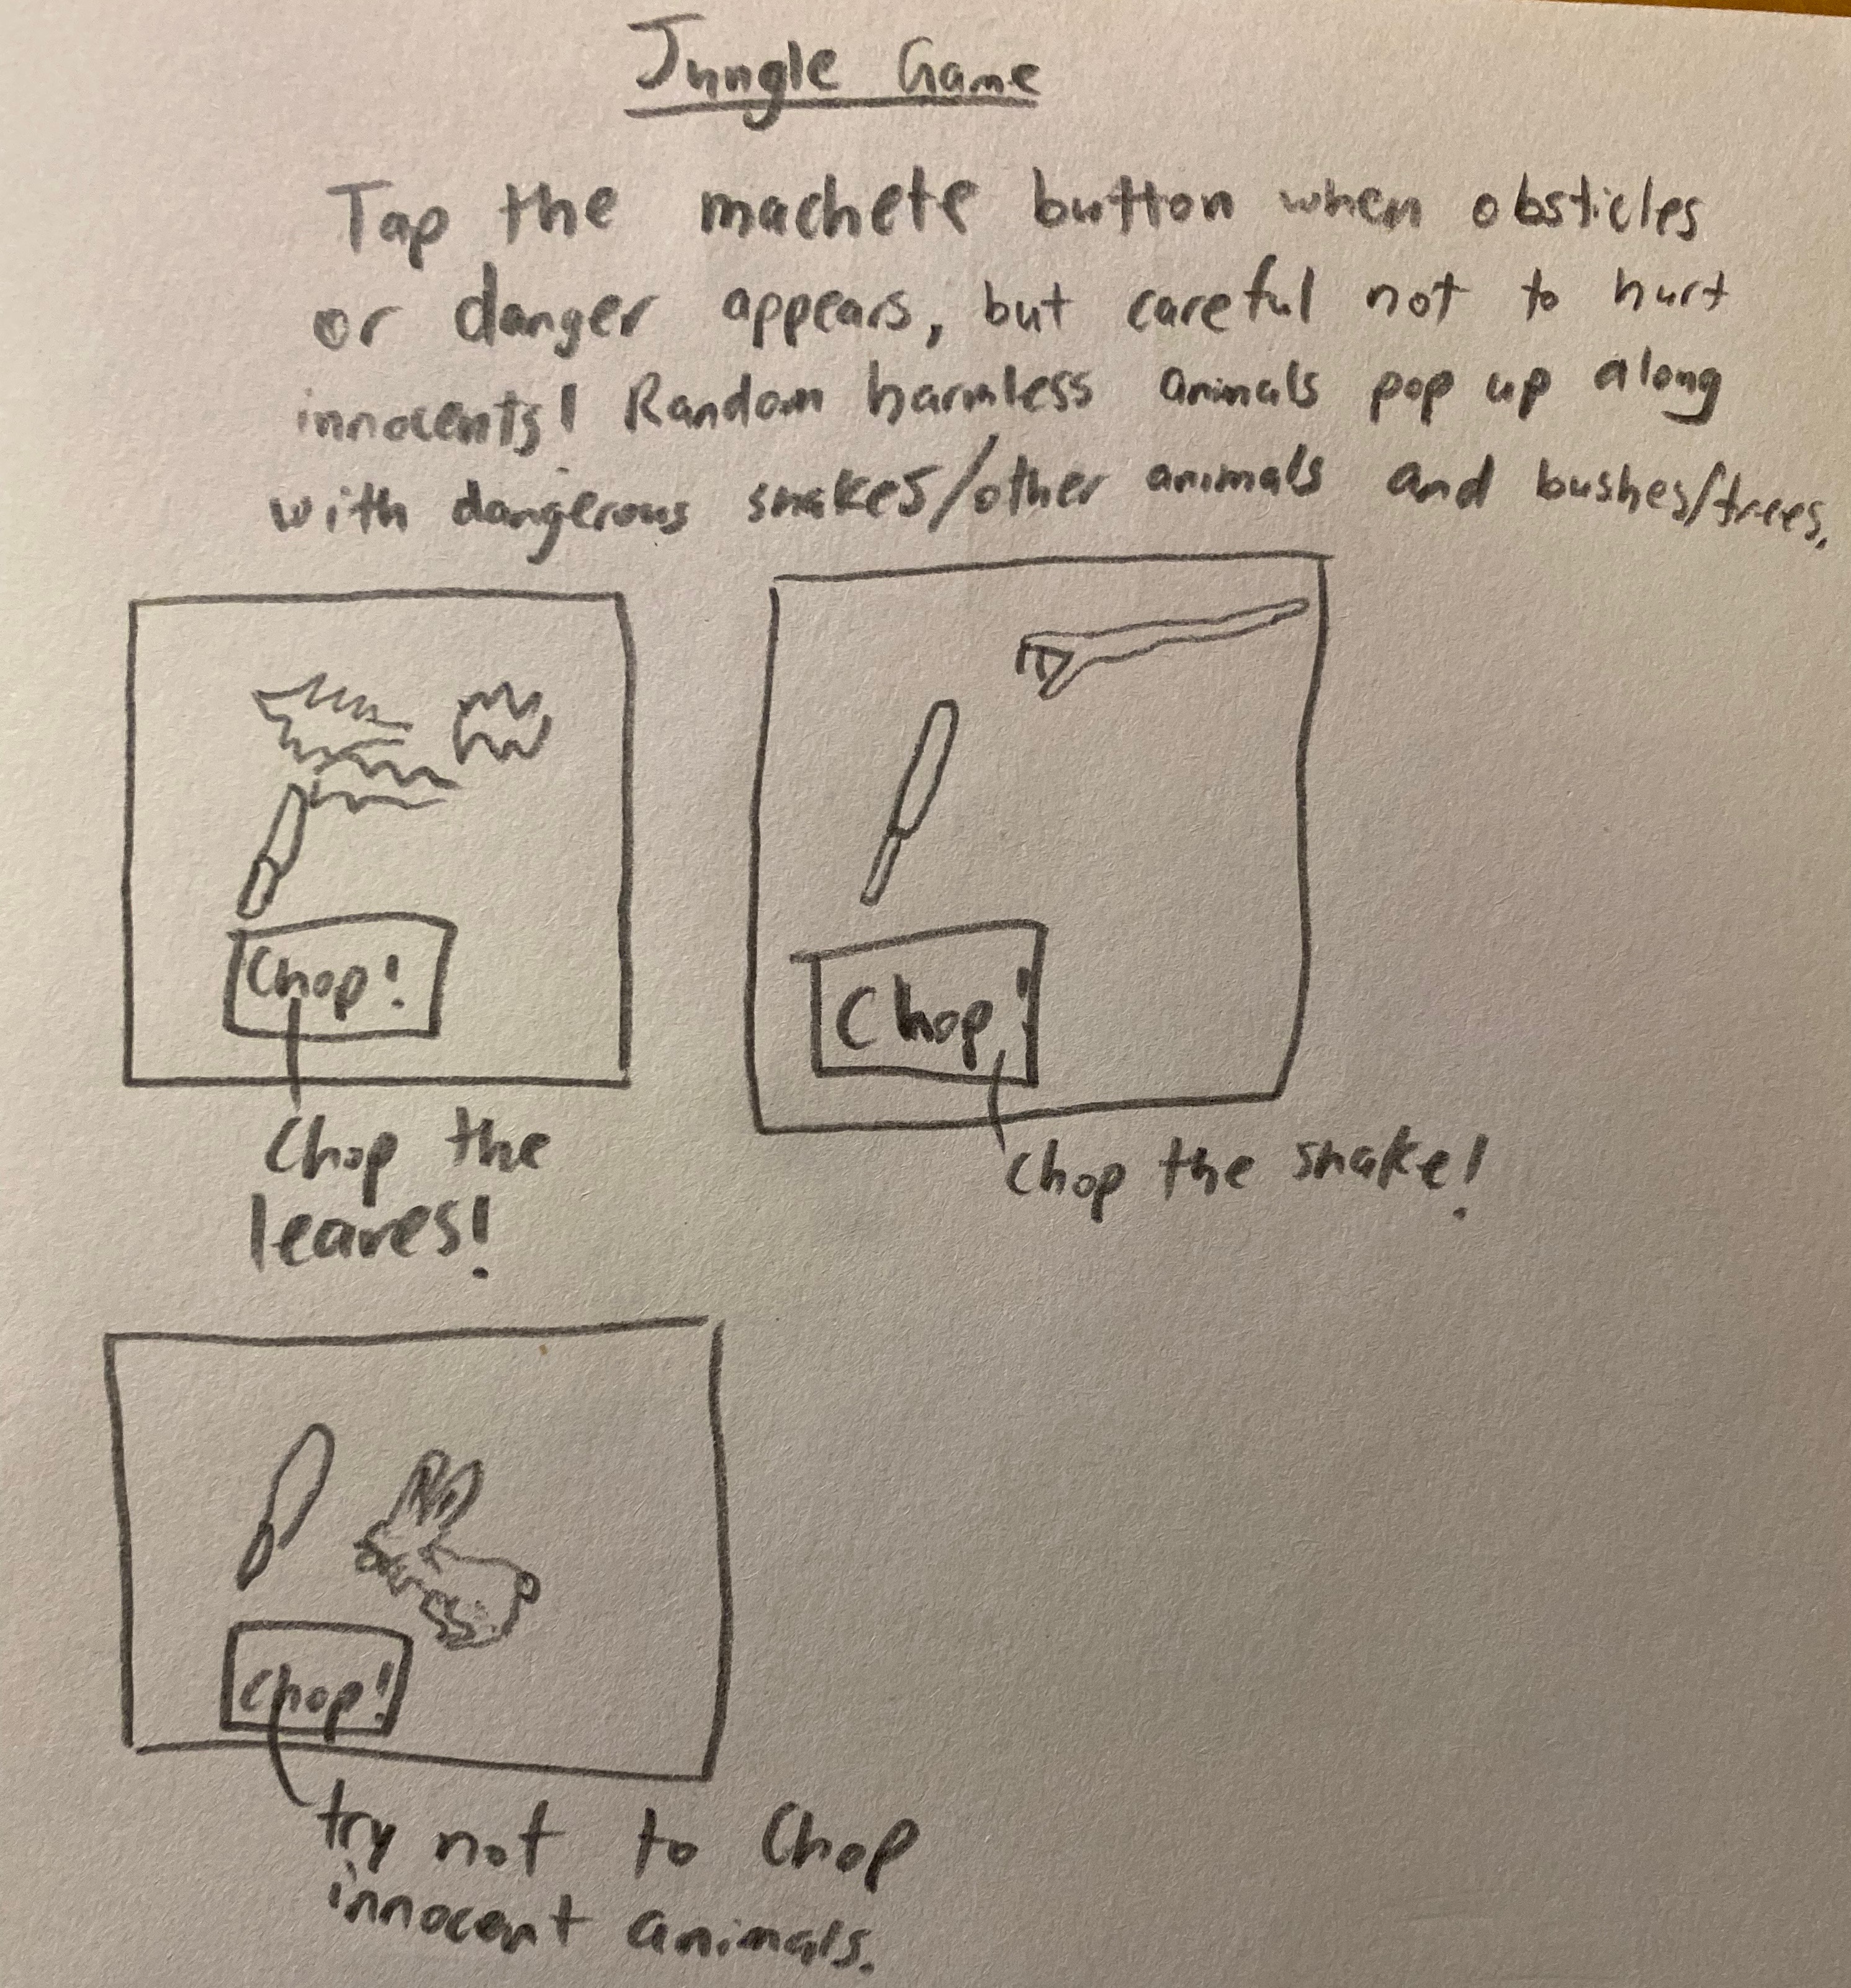 Jungle Game
Tap the machete button when obsticles
or danger appears, but careful not to hurt
innocents! Random harmless animals pop up along
with dangerous snakes/other animals and bushes/trees.
Chop!
Chop the
leaves!
Chop!
Chop the snake!
Chop!
try not to Chop
innocent animals.